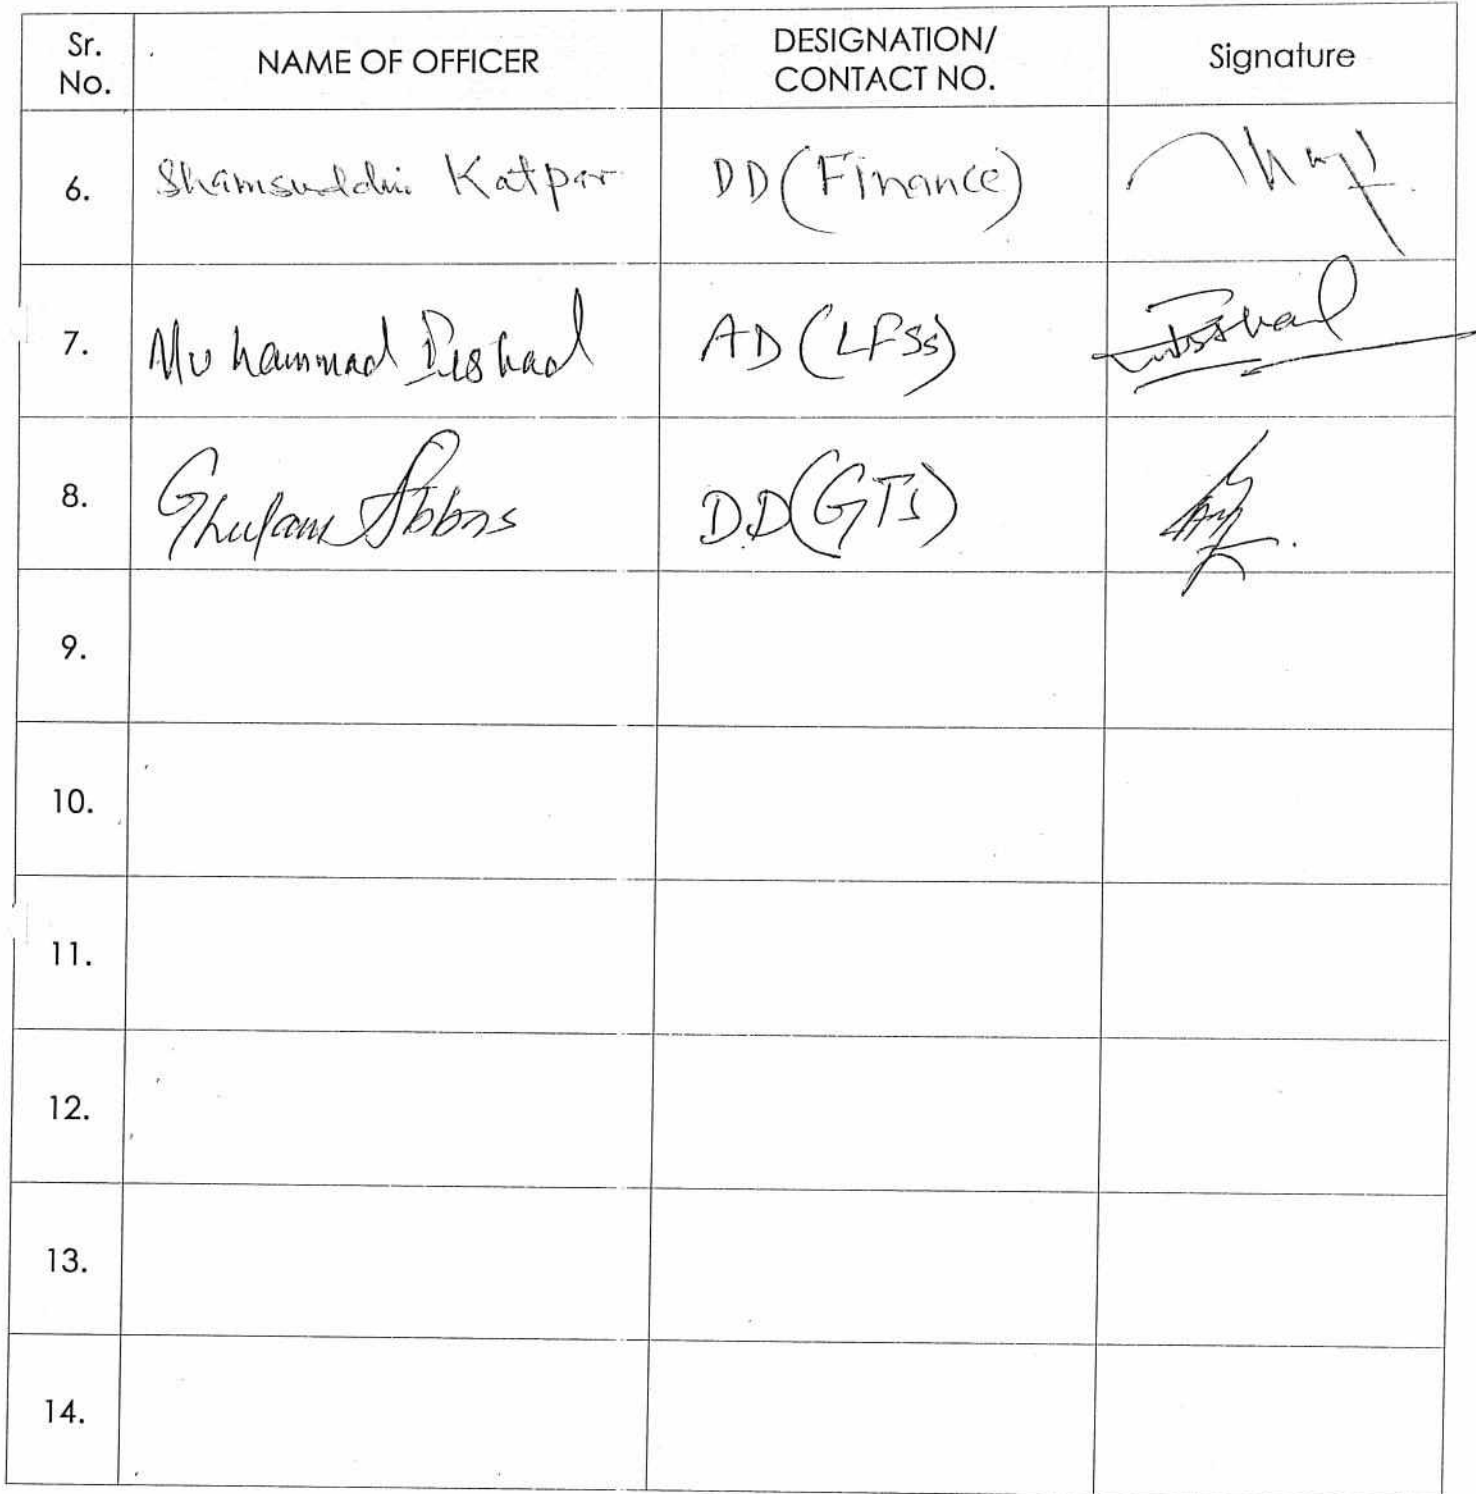 Sr. No. NAME OF OFFICER DESIGNATION/ CONTACT NO. Signature
6. Shamsuddin Katpar DD (Finance)
7. Muhammad Irshad AD (LFSs)
8. Ghulam Abbas DD (GTS)
9.
10.
11.
12.
13.
14.